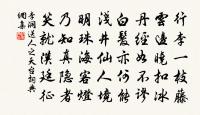 行李一枝藤
雲邊曉扣冰
丹經如不謬
白髮亦何能
淺井仙人境
明珠海客燈
乃知真隱者
笑就漢廷徵
李洞送人之天台